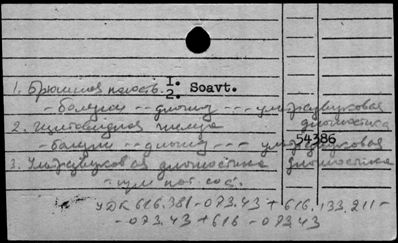 I.
2. Soavt.
1. Брюшная полость
- болезни - - диагноз - - - ультразвуковая
диагностика
2. Щитовидная железа
54386
- болезни - - диагноз - - - ультразвуковая
диагностика
3. Ультразвуковая диагностика
УДК 616.381-073.43 + 616.133.211-
-073.43 + 616-073.43